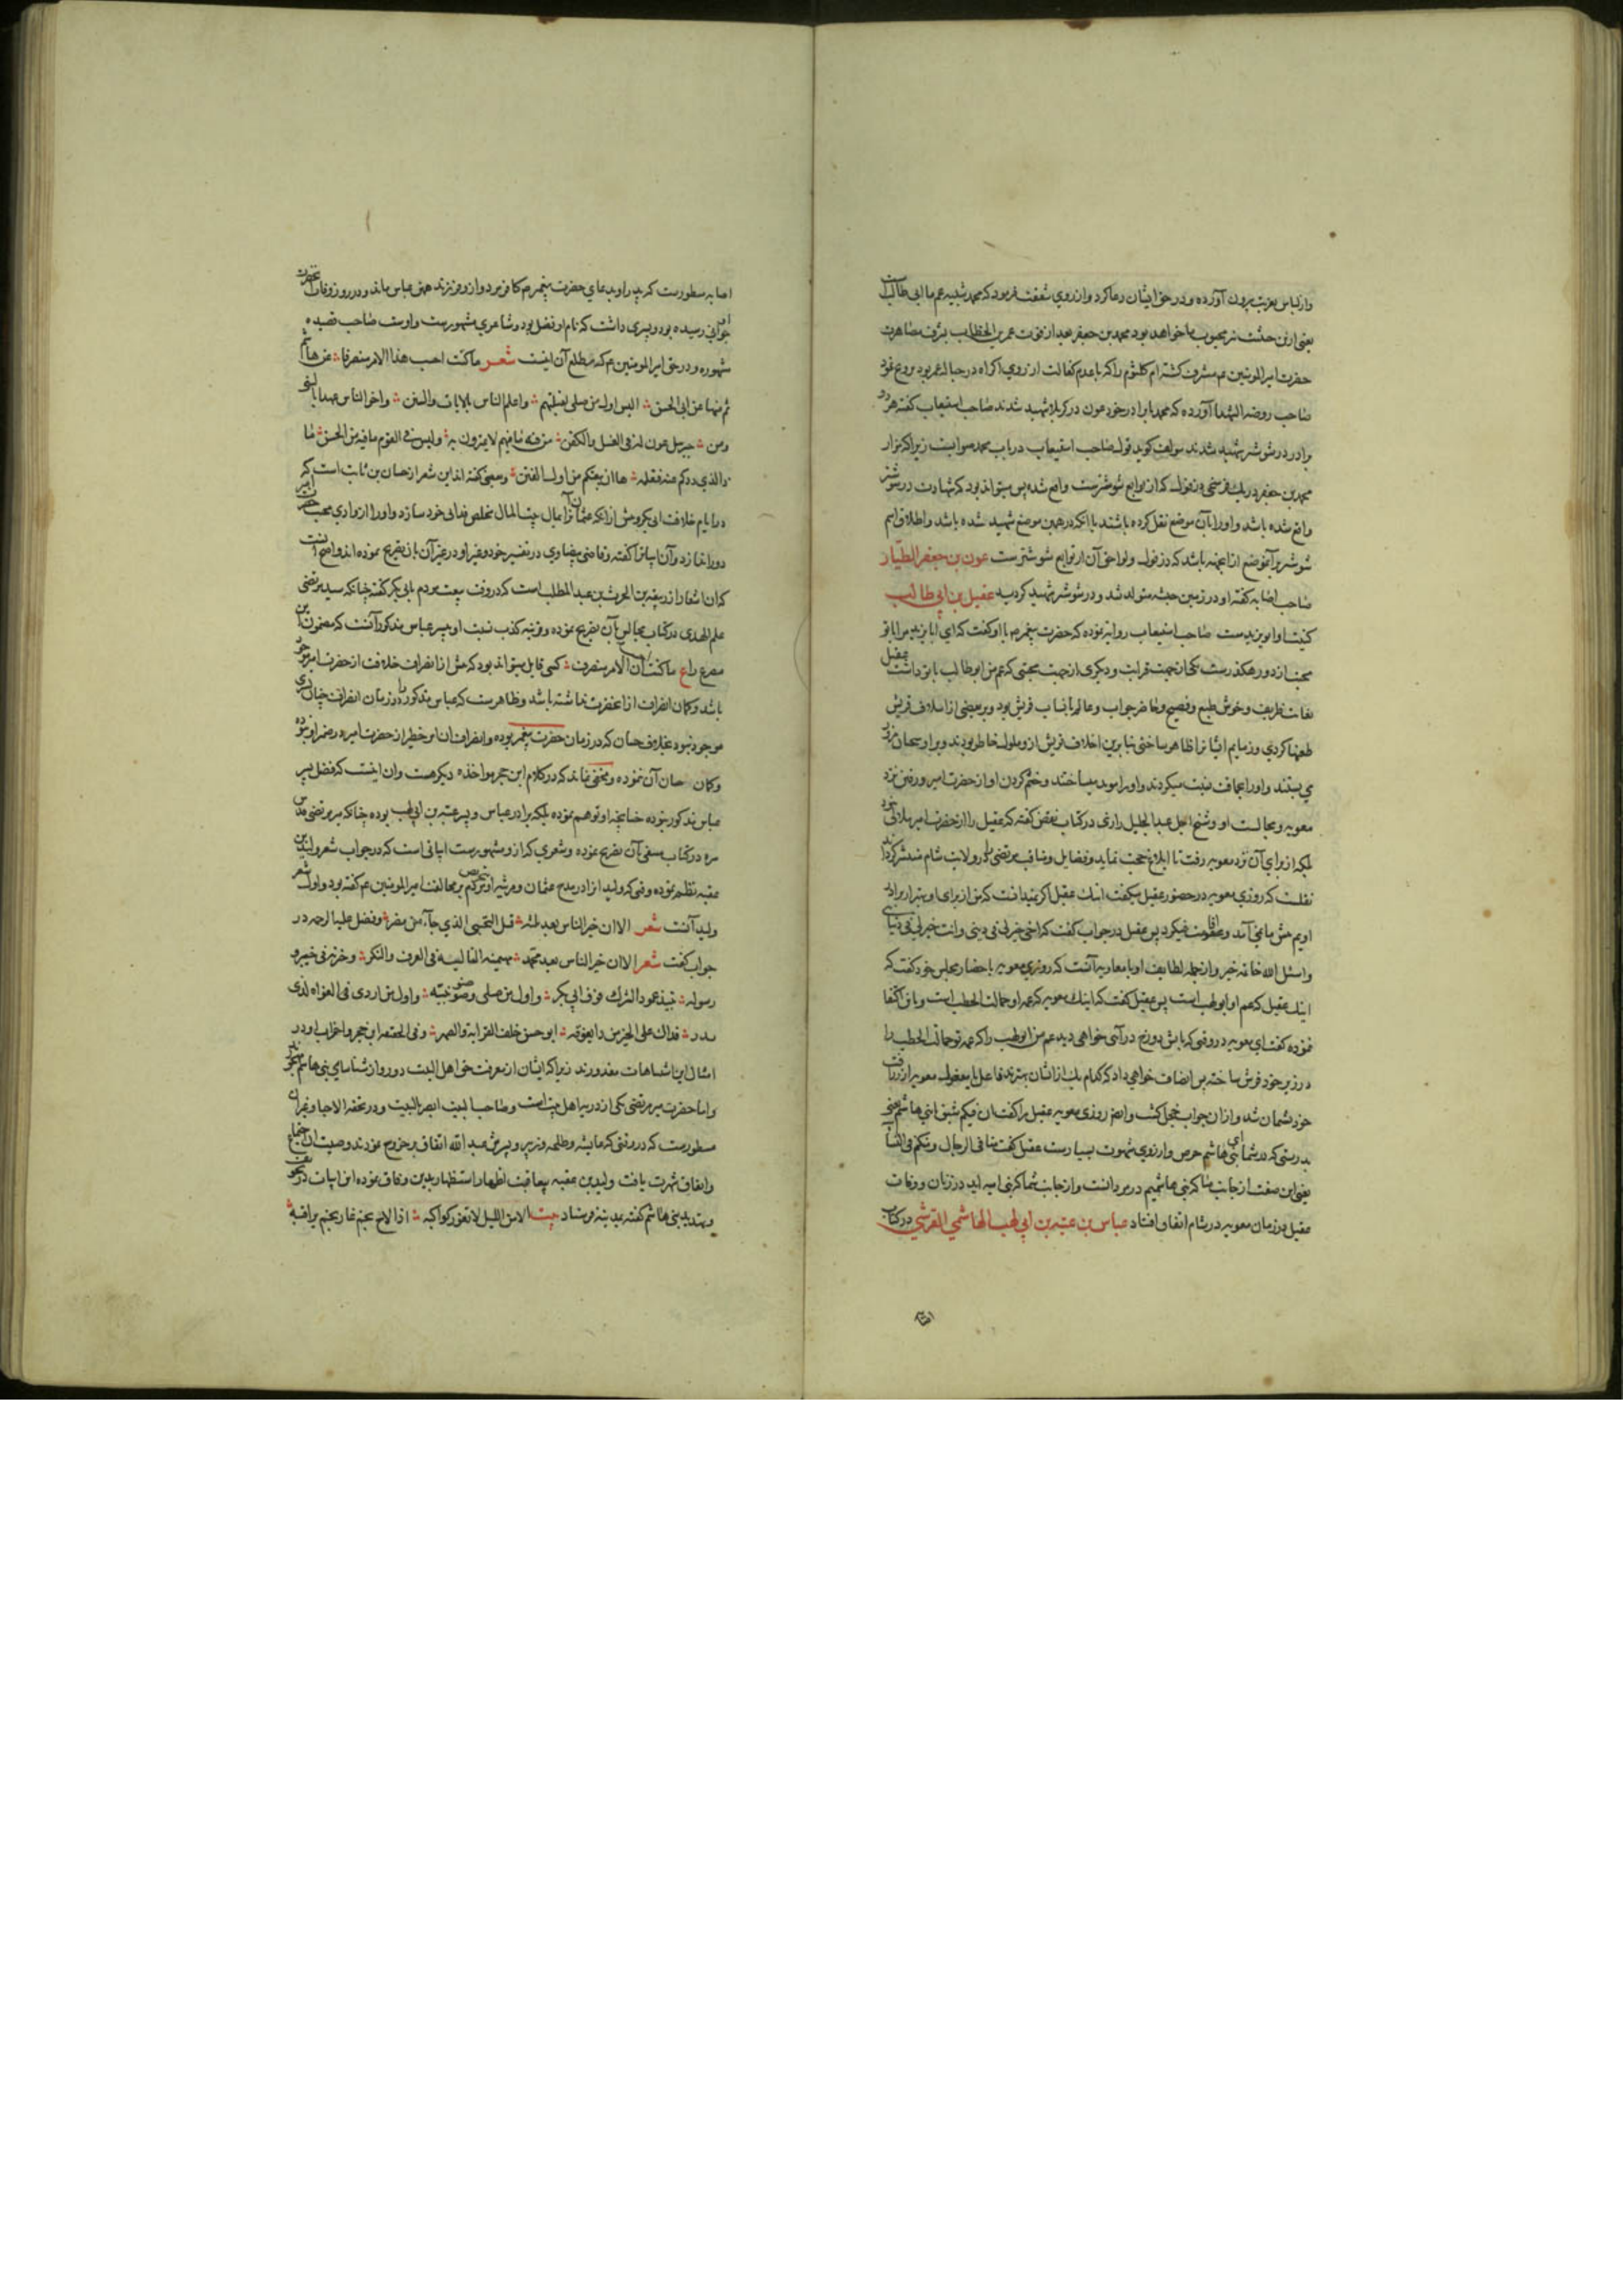 واز لباس عزیت بیرون آورده و در حق ایشان دعا کرد و از روی شفقت فرمود که محمد شبیه عم ما ابی طالب است
یعنی او نیز محبوب ما خواهد بود محمد بن جعفر بعد از فوت عمر بن الخطاب بشرف مصاهرت
حضرت امیر المومنین ع مشرف کشته ام کلثوم را که با عدم کفائت از روی اکراه در حباله عمر بود تزویج نمود
صاحب روضه الشهدا آورده که محمد با برادر خود عون در کربلا شهید شدند صاحب استیعاب کفته هر دو
برادر در شوشتر شهید شدند مولف کوید قول صاحب استیعاب در باب محمد صوابست زیرا که مزار
محمد بن جعفر در یک فرسخی دزفول که از توابع شوشترست واقع شده پس میتواند بود که شهادت در شوشتر
واقع شده باشد و او را بآن موضع نقل کرده باشند یا انکه در همین موضع شهید شده باشد و اطلاق اسم
شوشتر بر آنموضع از انجهت باشد که دزفول و لواحق آن از توابع شوشترست عون بن جعفر الطیار
صاحب اصابه کفته او در زمین حبشه متولد شد و در شوشتر شهید کردید عقیل بن ابی طالب
کنیت او ابو یزیدست صاحب استیعاب روایه نموده که حضرت پیغمبر ص با او کفت که ای ابا یزید من با تو
محبت از دو رهکذرست یکی از جهت قرابت و دیکری از جهت محبتی که عم من ابوطالب با تو داشت عقیل
بغایت ظریف و خوش طبع و فصیح و حاضر جواب و عالم بانساب قریش بود و بر بعضی از اسلاف قریش
طعنها کردی و ذمایم ایشانرا ظاهر ساختی بنا برین اخلاف قریش از و ملول خاطر بودند و بر او سخنان
می بستند و او را بحماقت نسبت میکردند
معویه و مجالست او و شیخ اجل عبد الجلیل رازی در کتاب نقض کفته که عقیل را از حضرت امیر ملالتی نبود
بلکه از برای آن نزد معویه رفت تا ابلاغ حجت نماید و فضایل و مناقب مرتضی را در ولایت شام منتشر کرداند
نقلست که روزی معویه در حضور عقیل میکفت اینک عقیل اکر نمیدانست که من از برای او بهتر از برادر
اویم پیش ما نمی آمد و اقامت نمیکرد پس عقیل در جواب کفت که اخی خیر لی فی دینی و انت خیر لی فی دنیای
واسئل الله خاتمه خیر و از جمله لطایف او با معاویه آنست که روزی معویه با حضار مجلس خود کفت که
اینک عقیل که عم او ابو لهب است پس عقیل کفت که اینک معویه که عمه او حمالة الحطب است و باین اکتفا
نموده کفت ای معویه در وقتی که بآتش دوزخ درآئی خواهی دید عم من ابو لهب را که عمه تو حمالة الحطب را
در زیر خود فرش ساخته پس انصاف خواهی داد که کدام یک از ایشان بهترند فاعل یا مفعول معویه از
خود پشیمان شد و از ان جواب خجل کشت و ایضا روزی معویه عقیل را کفت ان فیکم شبق ای بنی هاشم یعنی
بدرستی که در شما ای بنی هاشم حرص و آرزوی شهوت بسیارست عقیل کفت منا فی الرجال و منکم فی النسا
یعنی این صفت از جانب ما که بنی هاشمیم در مردانست و از جانب شما که بنی امیه اید در زنان و وفات
عقیل در زمان معویه در شام اتفاق افتاد عباس بن عتبه بن ابی لهب الهاشمی القرشی در کتاب
اصابه مسطورست که پدر او بدعای حضرت پیغمبر ص کافر مرد و از و فرزند همین عباس ماند و در روز وفات آنحضرت
او بجوانی رسیده بود و پسری داشت که نام او فضل بود و شاعری مشهورست و اوست صاحب قصیده
مشهوره در حق امیر المومنین ع که مطلع آن اینست شعر ما کنت احسب هذا الامر منصرفا عن هاشم
ثم منها عن ابی الحسن الیس اول من صلی لقبلتهم واعلم الناس بالایات والسنن واخر الناس عهدا بالنبی
ومن جبریل عون له فی الغسل والکفن من فیه ما فیهم لا یمترون به ولیس فی القوم ما فیه من الحسن ما
ذا الذی ردکم عنه فنعلمه ها ان بیعتکم من اول الفتن و بعضی کفته اند این شعر از حسان بن ثابت است که
در ایام خلافت ابی بکر و پیش از انکه عثمان او را بمال بیت المال مخلص فدائی خود سازد و او را از وادی محبت حضرت امیر
دور اندازد و آن ابیاترا کفته و قاضی بیضاوی در تفسیر خود و غیر او در غیر آن باین تصریح نموده اند و اصح آنست
که ان اشعار از ربیعه بن الحرث بن عبد المطلب است که در وقت بیعت مردم با بی بکر کفته چنانکه سید مرتضی
علم الهدی در کتاب مجالس بآن تصریح نموده و قرینه کذب نسبت او بپسر عباس مذکور آنست که مضمون این
مصراع راع ما کنت احسب ان الامر منصرف کسی قایل میتواند بود که پیش از انصراف خلافت از حضرت امیر موجود
باشد و کمان انصراف از آنحضرت نداشته باشد و ظاهرست که عباس مذکور را در زمان انصراف چنان پسری
موجود نبود بخلاف حسان که در زمان حضرت پیغمبر بوده و انصراف ان امر خطیر از حضرت امیر در عصر او بوده
وکمان حسان آن نموده و مخفی نماند که در کلام ابن حجر مواخذه دیکر هست وان اینست که فضل پسر
عباس مذکور نبوده چنانچه او توهم نموده بلکه برادر عباس و پسر عتبه بن ابی لهب بوده چنانکه میر مرتضی قدس
سره در کتاب بآن تصریح نموده و شعری که از و مشهورست ابیاتی است که در جواب شعر ولید بن
عقبه نظم نموده وقتی که ولید از در مدح عثمان و مرثیه او و تحریص مردم بر مخالفت امیر المومنین ع کفته بود و اول شعر
ولید آنست شعر الا ان خیر الناس بعد ثلثه قتیل التجیبی الذی جاء من مصر و فضل علیه الرحمه در
جواب کفت شعر الا ان خیر الناس بعد محمد مهیمنه التالیه فی العرف والنکر وخیرته فی خیبر و
رسوله بنبذ عهود الشرک فوق ابی بکر واول من صلی وصنو نبیه واول من اردی الغواة لدی
بدر فذاک علی الخیر من ذا یفوقه ابو حسن حلف القرابة والصهر و فی الحقیقه ابن حجر و اضراب او در
امثال این اشتباهات معذورند زیرا که ایشان از معرفت حق اهل البیت دور و از شناسای بنی هاشم مهجورند
واما حضرت میر مرتضی یکی از ذریه اهل بیت است و صاحب البیت ابصر بالبیت و در تحفه الاحبا و غیر آن
مسطورست که در وقتی که عایشه و طلحه و زبیر و پسرش عبد الله اتفاق بر خروج نمودند و صیت ان اجتماع
واتفاق شهرت یافت ولید بن عقبه اظهار استظهار بدین وفاق نموده این ابیات در تخویف
و تهدید بنی هاشم کفته بمدینه فرستاد بیت الا من اللیل لا تغور کواکبه اذا لاح نجم غار نجم یراقبه